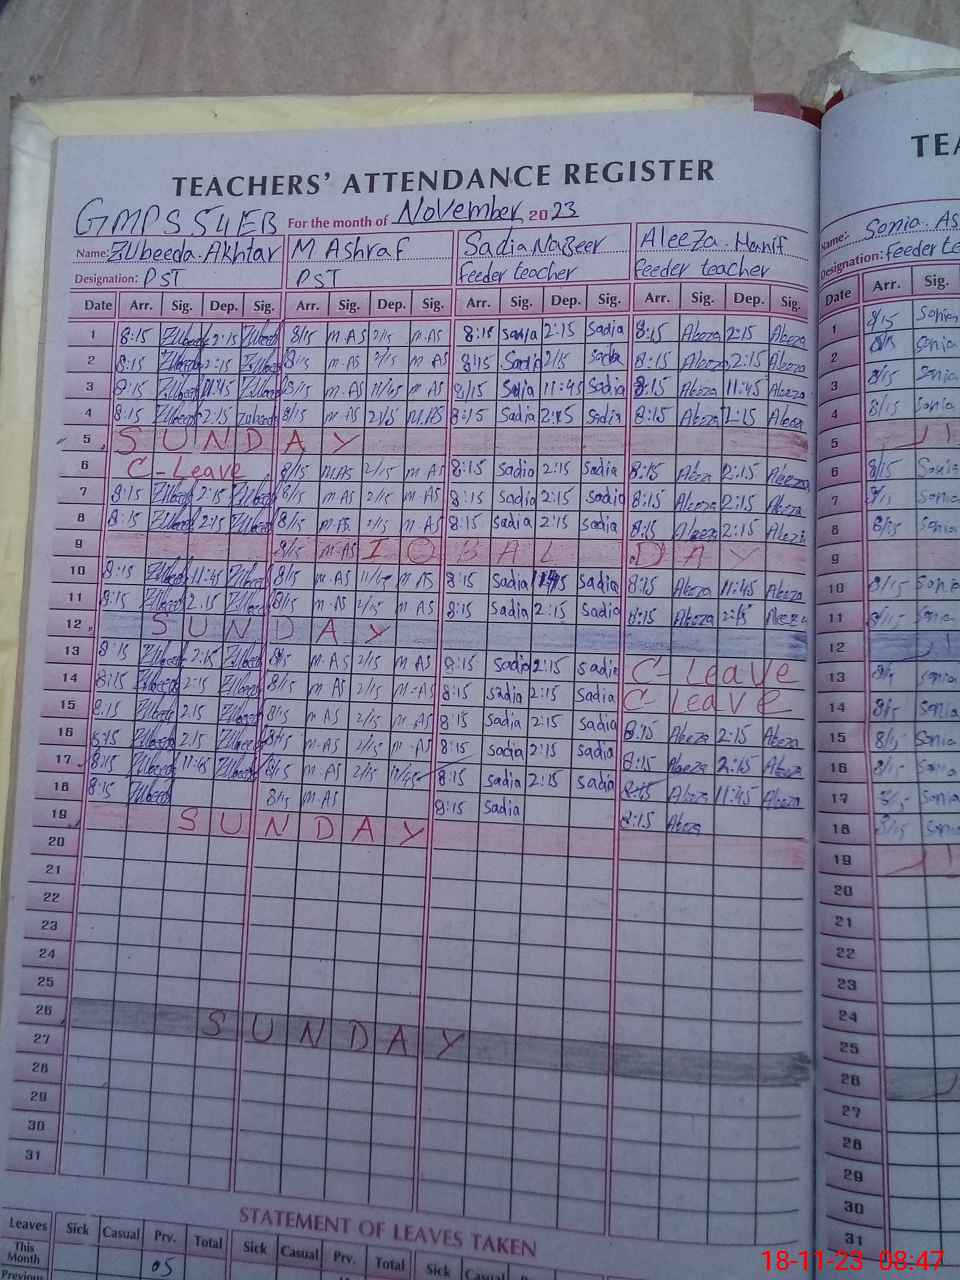 TEACHERS' ATTENDANCE REGISTER TEA
GMPS 54EB For the month of November 2023
Name: Zubeeda Akhtar M Ashraf Sadia Nazeer Aleeza Hanif Name: Sonia. As
Designation: PST PST feeder teacher feeder teacher Designation: feeder te
Date Arr. Sig. Dep. Sig. Arr. Sig. Dep. Sig. Arr. Sig. Dep. Sig. Arr. Sig. Dep. Sig. Date Arr. Sig.
1 8:15 2:15 8/15 M.AS 2/15 M.AS 8:15 Sadia 2:15 Sadia 8:15 Aleeza 2:15 Aleeza 1 8/15 Sonia
2 8:15 2:15 8/15 M.AS 2/15 M AS 8:15 Sadia 2/15 Sadia 8:15 Aleeza 2:15 Aleeza 2 8/15 Sonia
3 8:15 11:45 8/15 M.AS 11/45 M AS 8/15 Sadia 11:45 Sadia 8:15 Aleeza 11:45 Aleeza 3 8/15 Sonia
4 8:15 2:15 8/15 M-AS 2/15 M.AS 8:15 Sadia 2:15 Sadia 8:15 Aleeza 2:15 Aleeza 4 8/15 Sonia
5 SUNDAY 5
6 C-Leave 8/15 M.AS 2/15 M AS 8:15 Sadia 2:15 Sadia 8:15 Aleeza 2:15 Aleeza 6 8/15 Sonia
7 8:15 2:15 8/15 M.AS 2/15 M-AS 8:15 Sadia 2:15 Sadia 8:15 Aleeza 2:15 Aleeza 7 Sonia
8 8:15 2:15 8/15 M.AS 2/15 M-AS 8:15 Sadia 2:15 Sadia 8:15 Aleeza 2:15 Aleeza 8 8/15 Sonia
9 8/15 M-AS IQBAL DAY 9
10 8:15 11:45 8/15 M.AS 11/45 M AS 8:15 Sadia Sadia 8:15 Aleeza 11:45 Aleeza 10 8/15 Sonia
11 8:15 2:15 8/15 M.AS 2/15 M AS 8:15 Sadia 2:15 Sadia 8:15 Aleeza 2:15 Aleeza 11 8/15 Sonia
12 SUNDAY 12
13 8:15 2:15 8/15 M.AS 2/15 M AS 8:15 Sadia 2:15 Sadia C-Leave 13 Sonia
14 8:15 2:15 8/15 M.AS 2/15 M-AS 8:15 Sadia 2:15 Sadia C-Leave 14 8/15 Sonia
15 8:15 2:15 8/15 M AS 2/15 M AS 8:15 Sadia 2:15 Sadia 8:15 Aleeza 2:15 Aleeza 15 8/15 Sonia
16 8:15 2:15 8/15 M.AS 2/15 M AS 8:15 Sadia 2:15 Sadia 8:15 Aleeza 2:15 Aleeza 16 8/15 Sonia
17 8:15 11:45 8/15 M.AS 2/15 8:15 Sadia 2:15 Sadia 8:15 Aleeza 11:45 Aleeza 17 8/15 Sonia
18 8:15 8/15 M.AS 8:15 Sadia 8:15 Aleeza 18 8/15 Sonia
19 SUNDAY 19
20 20
21 21
22 22
23 23
24 24
25 25
26 SUNDAY 26
27 27
28 28
29 29
30 30
31 31
STATEMENT OF LEAVES TAKEN
Leaves Sick Casual Prv. Total Sick Casual Prv. Total Sick Casual Prv.
This Month 05
Previous
18-11-23 08:47